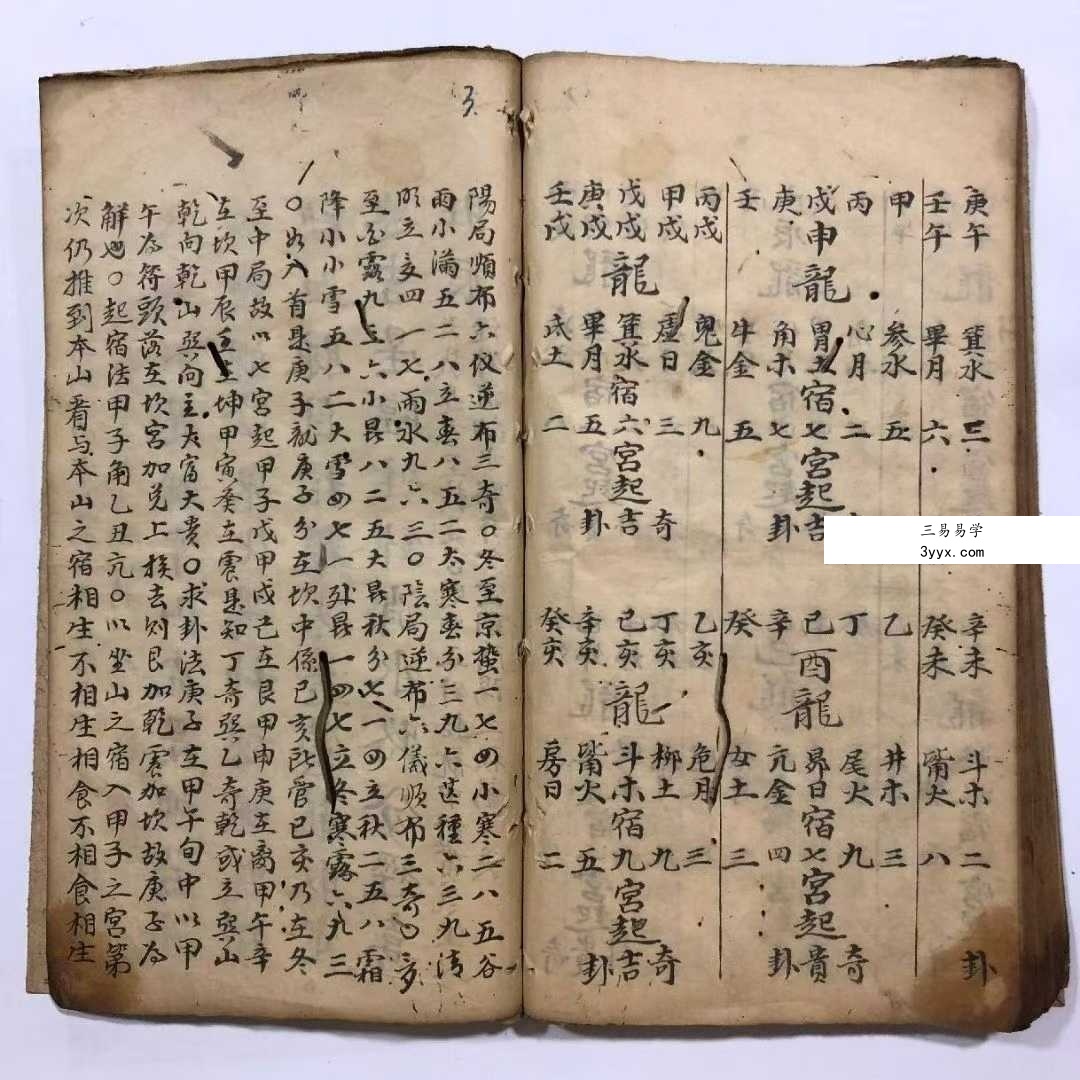 庚午 箕水 三 辛未 斗木 二 卦
壬午 畢月 六 癸未 觜火 八
甲 參水 五 乙 井木 三
丙 心月 二 丁 尾火 九 奇
戊申龍 胃土宿七宮起吉 己酉龍 昴日宿七宮起貴
庚 角木 七 卦 辛 亢金 四 卦
壬 牛金 五 癸 女土 三
丙戌 鬼金 九 乙亥 危月 三
甲戌 虛日 三 奇 丁亥 柳土 九 奇
戊戌龍 箕水宿六宮起吉 己亥龍 斗木宿九宮起吉
庚戌 畢月 五 卦 辛亥 觜火 五 卦
壬戌 氐土 二 癸亥 房日 二
三易易学
3yyx.com
3
陽局順布六仪逆布三奇〇冬至京蜇一七四小寒二八五谷
雨小滿五二八立春八五二大寒春分三九六芒種六三九清
明立夏四一七雨水九六三〇陰局逆布六儀順布三奇〇夏
至白露九三六小暑八二五大暑秋分七一四立秋二五八霜
降小小雪五八二大雪四七一処暑一四七立冬寒露六九三
〇如入首是庚子龍庚子分在坎中係己亥所管己亥乃在冬
至中局故以七宮起甲子戊甲戌己在艮甲申庚在离甲午辛
在坎甲辰壬在坤甲寅癸在震是知丁奇巽乙奇乾或立巽山
乾向乾山巽向主大富大貴〇求卦法庚子在甲午旬中以甲
午為符頭落在坎宮加兑上挨去則艮加乾震加坎故庚子為
解也〇起宿法甲子角乙丑亢〇以坐山之宿入甲子之宮第
次仍推到本山看与本山之宿相生不相生相食不相食相生